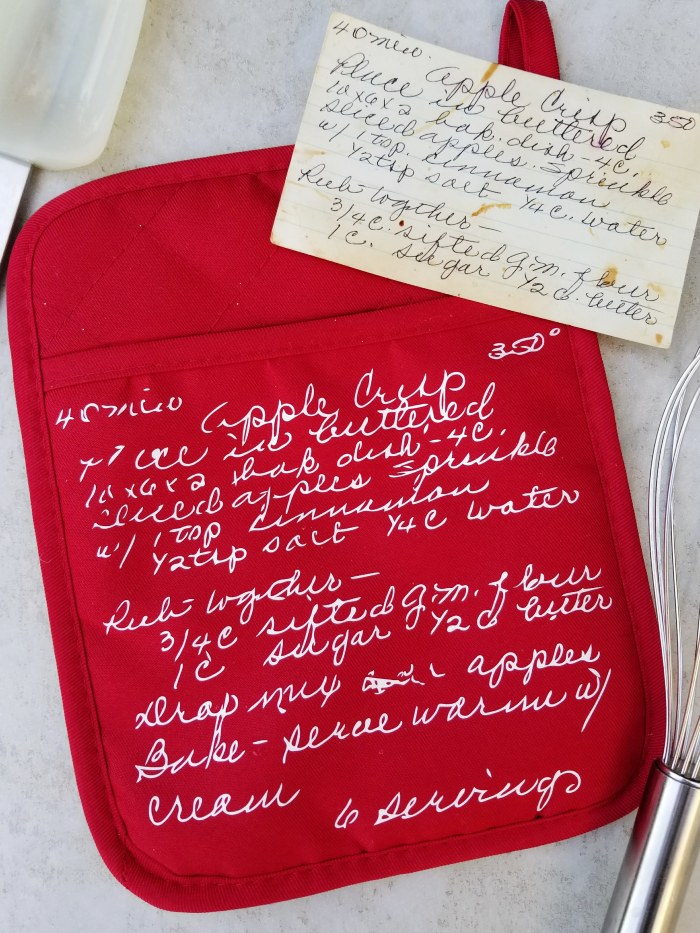 40 min.
Apple Crisp
350
Place in buttered
10x6x2 bak. dish - 4c.
sliced apples. Sprinkle
w/ 1 tsp. cinnamon
1/2 tsp salt 1/4 c. water
Rub together -
3/4 c. sifted g.m. flour
1 c. sugar 1/2 c. butter
350°
40 min
Apple Crisp
Place in buttered
10x6x2 bak dish - 4c.
sliced apples Sprinkle
w/ 1 tsp cinnamon
1/2 tsp salt 1/4 c water
Rub together -
3/4 c sifted g.m. flour
1 c sugar 1/2 c butter
Drop mix apples
Bake - serve warm w/
cream
6 servings